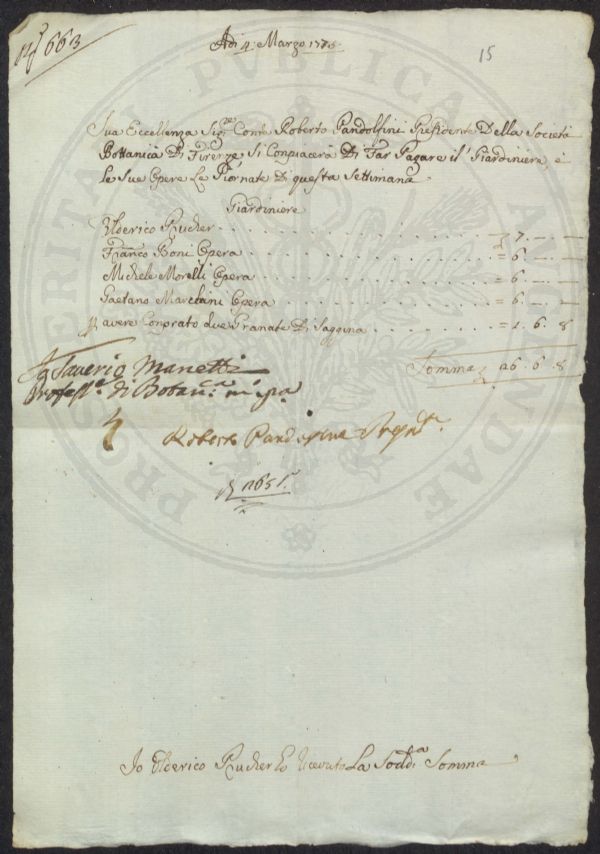 N.º 663
Adi 4: Marzo 1775.
15
Sua Eccellenza Sig.re Conte Roberto Pandolfini Presidente Della Società
Bottanica Di Firenze Si Conpiacerà Di Far Pagare il' Giardiniere, e
le Sue Opere Le Giornate Di questa Settimana
Giardiniere
Ulderico Prucher . . . . . . . . . . . . . = 7. — —
Fran.co Boni Opera . . . . . . . . . . . . = 6 — —
Michele Morelli Opera . . . . . . . . . . = 6. — —
Gaetano Marchini Opera . . . . . . . . . = 6. — —
p avere Conprato due Granate Di Saggina . . . . = 1. 6. 8
Somma 26. 6. 8
Saverio Manetti
Profess.e di Botan.ca m.o p.a
Roberto Pandolfini
Io Ulderico Prucher ho ricevuto La Sodd.a Somma
PROSPERITATI PVBLICAE AVGENDAE